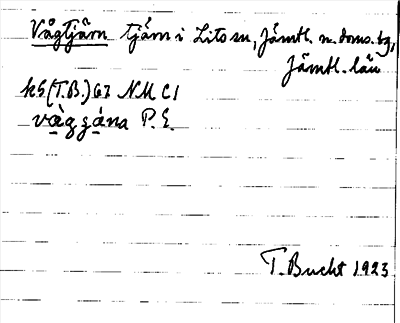 Vågtjärn tjärn i Lits sn, Jämtl. n. doms. bg,
Jämtl. län
k5 (T.B.) 63 NM C1
våggána P.E.
T. Bucht 1923